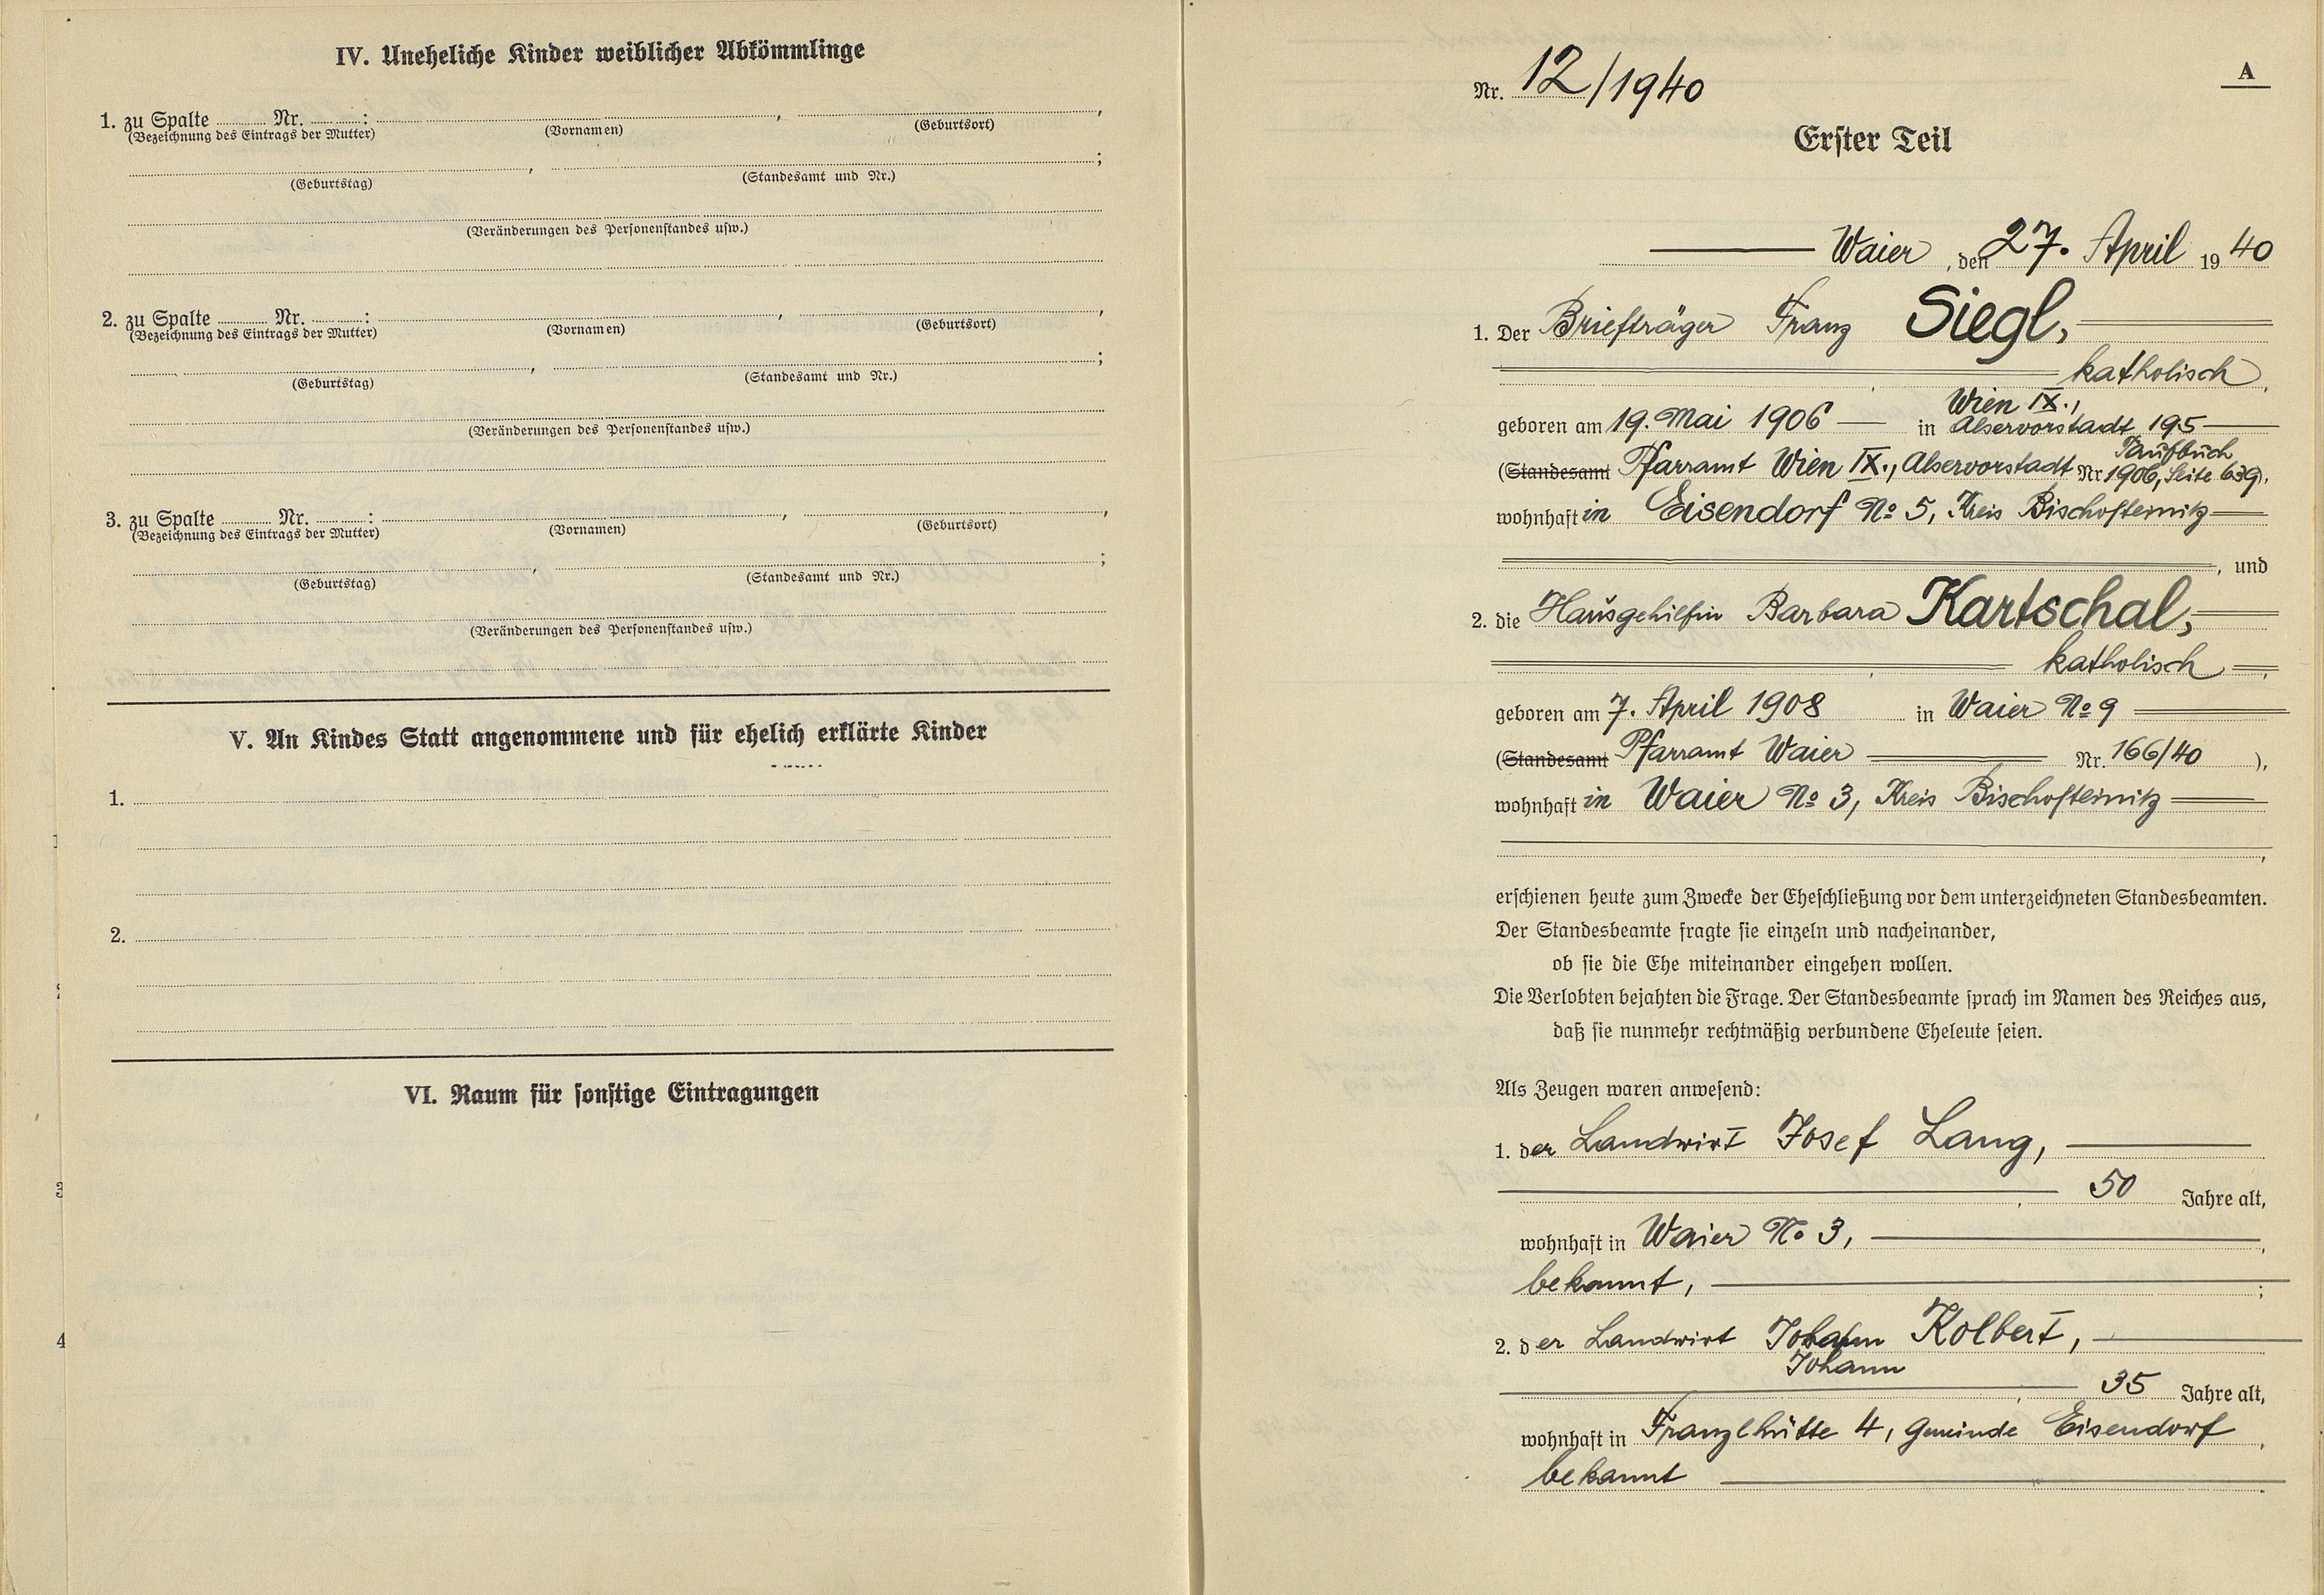 IV. Uneheliche Kinder weiblicher Abkömmlinge
1. zu Spalte ............ Nr. ............:
(Bezeichnung des Eintrags der Mutter) (Vornamen) (Geburtsort)
(Geburtstag) (Standesamt und Nr.)
(Veränderungen des Personenstandes usw.)
2. zu Spalte ............ Nr. ............:
(Bezeichnung des Eintrags der Mutter) (Vornamen) (Geburtsort)
(Geburtstag) (Standesamt und Nr.)
(Veränderungen des Personenstandes usw.)
3. zu Spalte ............ Nr. ............:
(Bezeichnung des Eintrags der Mutter) (Vornamen) (Geburtsort)
(Geburtstag) (Standesamt und Nr.)
(Veränderungen des Personenstandes usw.)
V. An Kindes Statt angenommene und für ehelich erklärte Kinder
1.
2.
VI. Raum für sonstige Eintragungen
3
4
A
Nr. 12/1940
Erster Teil
Waier, den 27. April 1940
1. Der Briefträger Franz Siegl,
katholisch,
Wien IX.,
geboren am 19. Mai 1906 in Alservorstadt 195
Taufbuch
(Standesamt Pfarramt Wien IX., Alservorstadt Nr. 1906, Seite 639),
wohnhaft in Eisendorf No 5, Kreis Bischofteinitz
, und
2. die Hausgehilfin Barbara Kartschal,
katholisch,
geboren am 7. April 1908 in Waier No 9
(Standesamt Pfarramt Waier Nr. 166/40),
wohnhaft in Waier No 3, Kreis Bischofteinitz
erschienen heute zum Zwecke der Eheschließung vor dem unterzeichneten Standesbeamten.
Der Standesbeamte fragte sie einzeln und nacheinander,
ob sie die Ehe miteinander eingehen wollen.
Die Verlobten bejahten die Frage. Der Standesbeamte sprach im Namen des Reiches aus,
daß sie nunmehr rechtmäßig verbundene Eheleute seien.
Als Zeugen waren anwesend:
1. der Landwirt Josef Lang,
50 Jahre alt,
wohnhaft in Waier No 3,
bekannt, ;
2. der Landwirt Johann Kolbert,
Johann
35 Jahre alt,
wohnhaft in Franzlhütte 4, Gemeinde Eisendorf,
bekannt